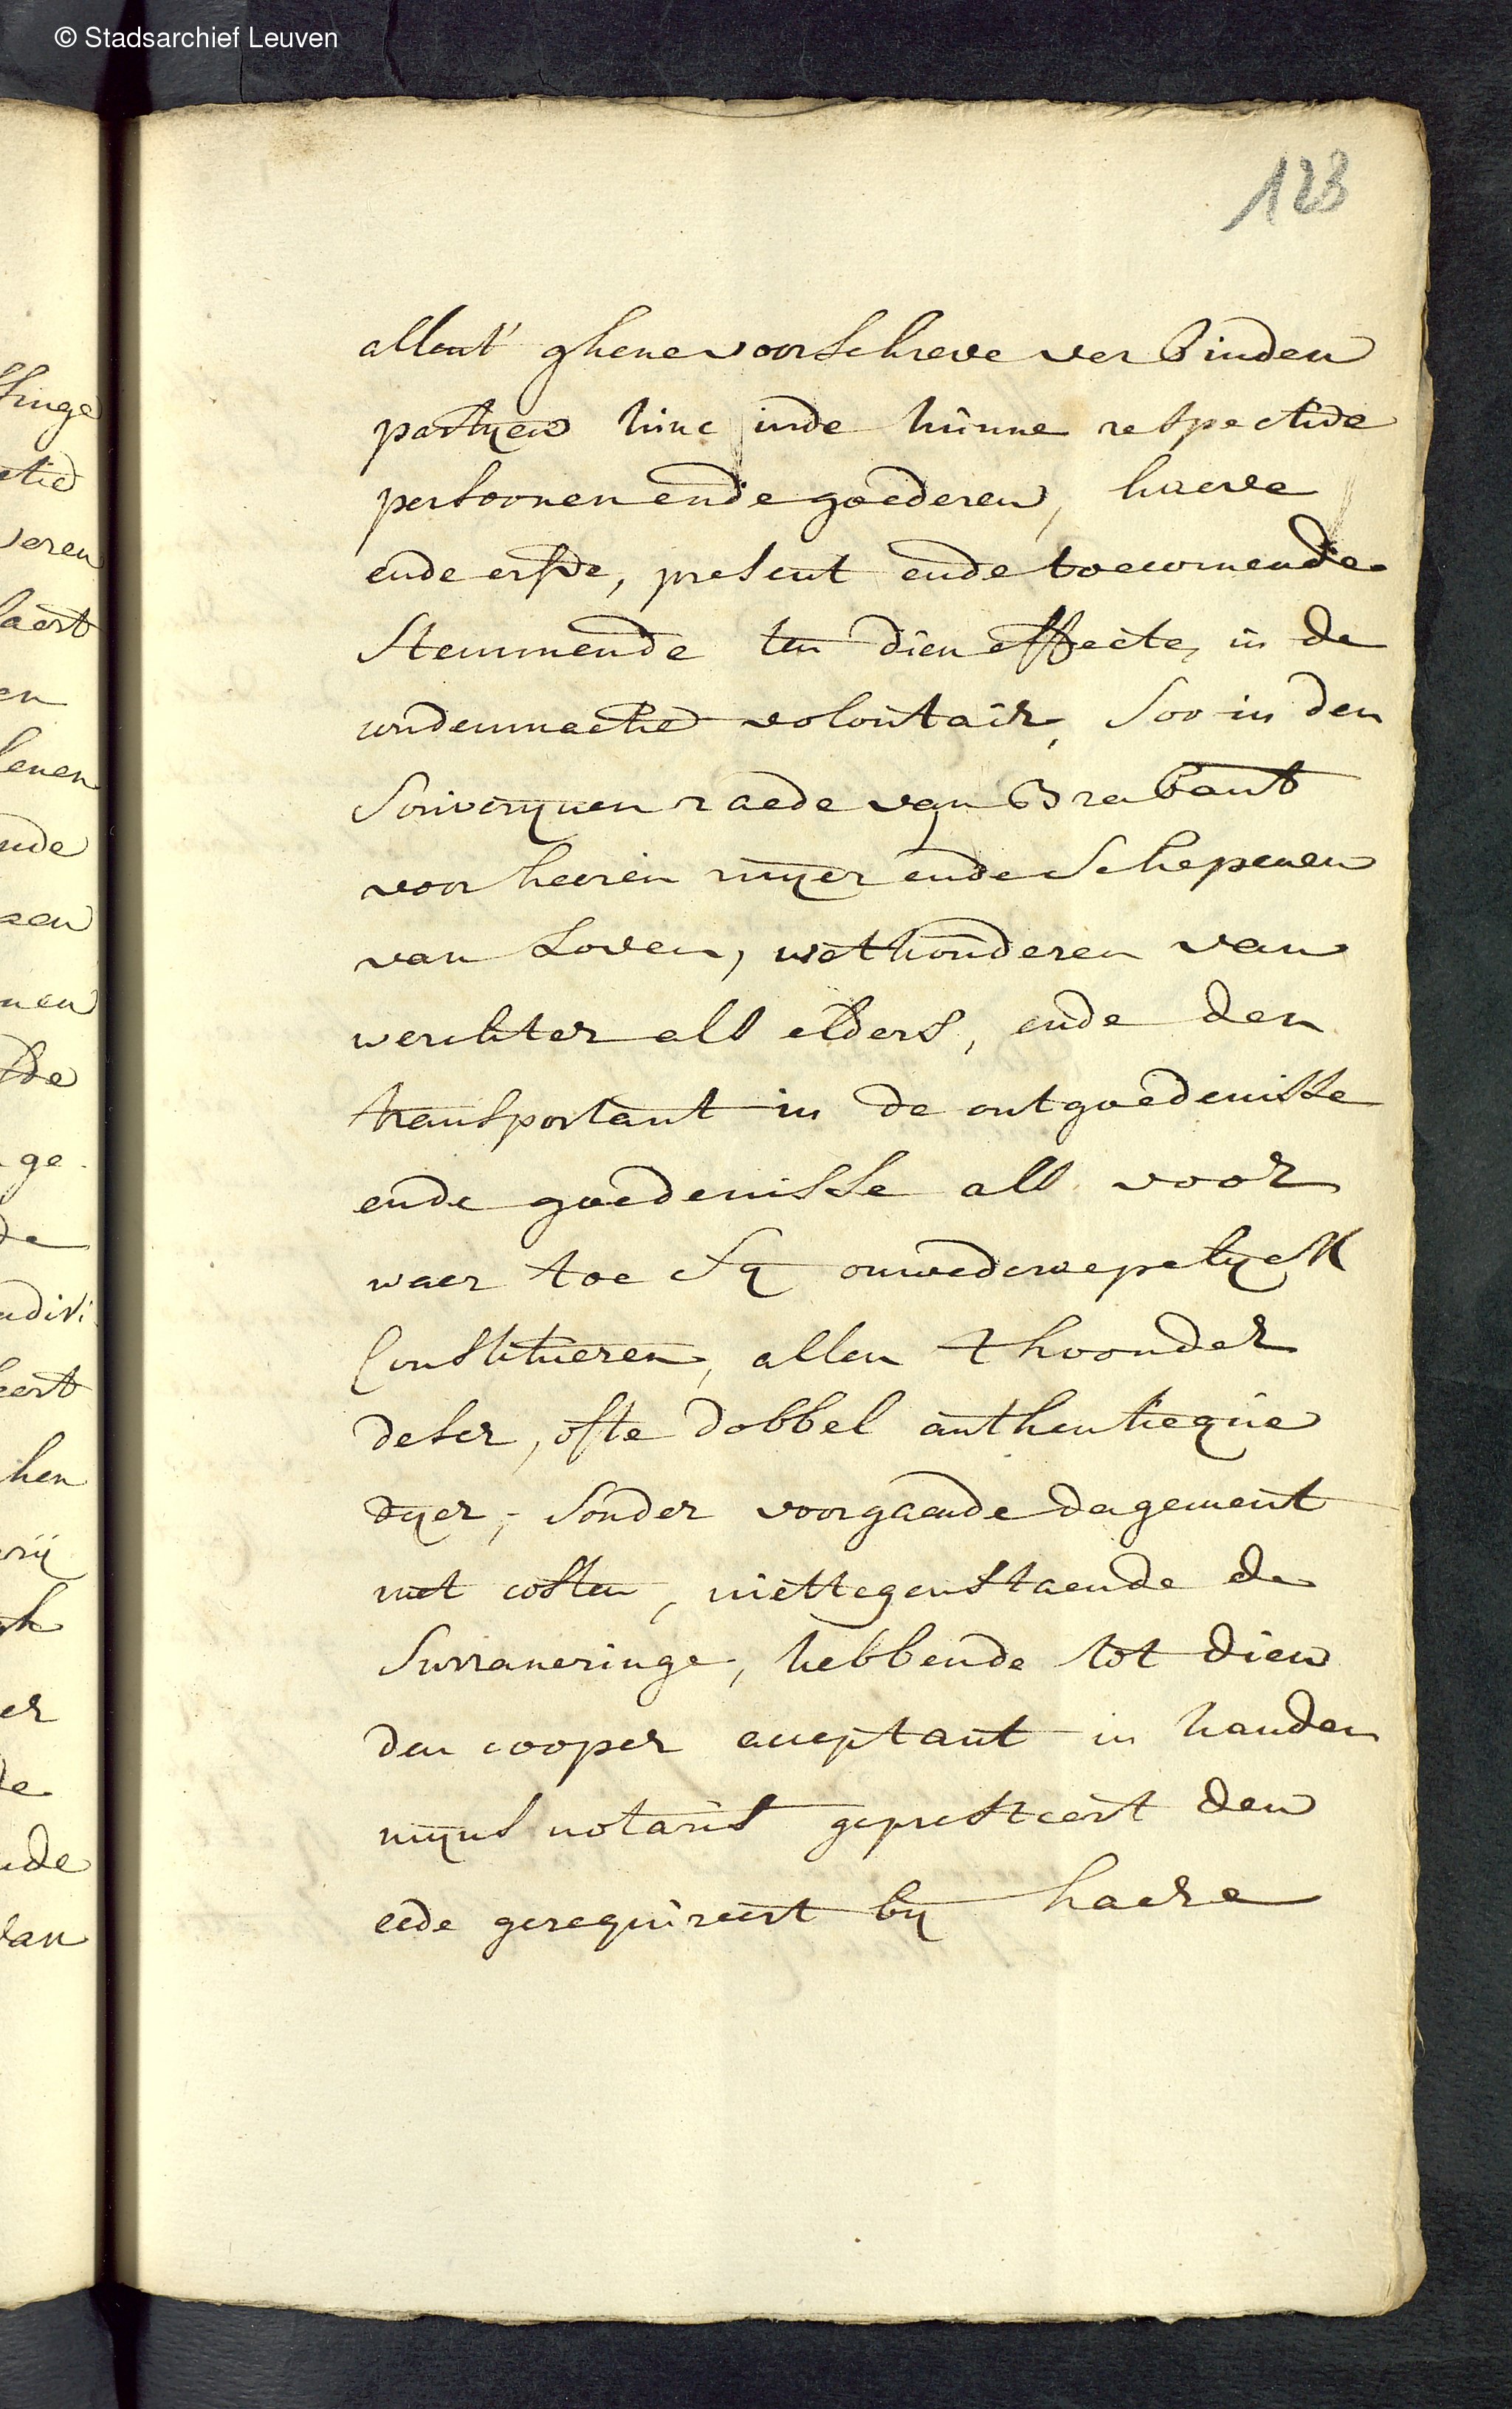 © Stadsarchief Leuven
123
allent' ghene voorschreve verbinden
partyen hinc inde hunne respective
persoonen ende goederen, haeve
ende erfve, present ende toecomende
stemmende ten dien effecte, in de
condemnatie volontair, soo in den
souverynen raede van Brabant
voor heeren myer ende schepenen
van Loven, wethouderen van
werchter als elders, ende den
transportant in de ontgoedenisse
ende goedenisse als voor
waer toe sy onwederoepelyck
Constitueren, allen thoonder
deser, ofte dobbel authentieque
dyer, sonder voorgaende dagement
met costen, niettegenstaende de
surraneringe, hebbende tot dien
den cooper acceptant in handen
myns notaris gepresteert den
eede gerequireert by haere
singe
veren
laert
en
nde
sen
nen
ge
de
hen
er
de
nde
van